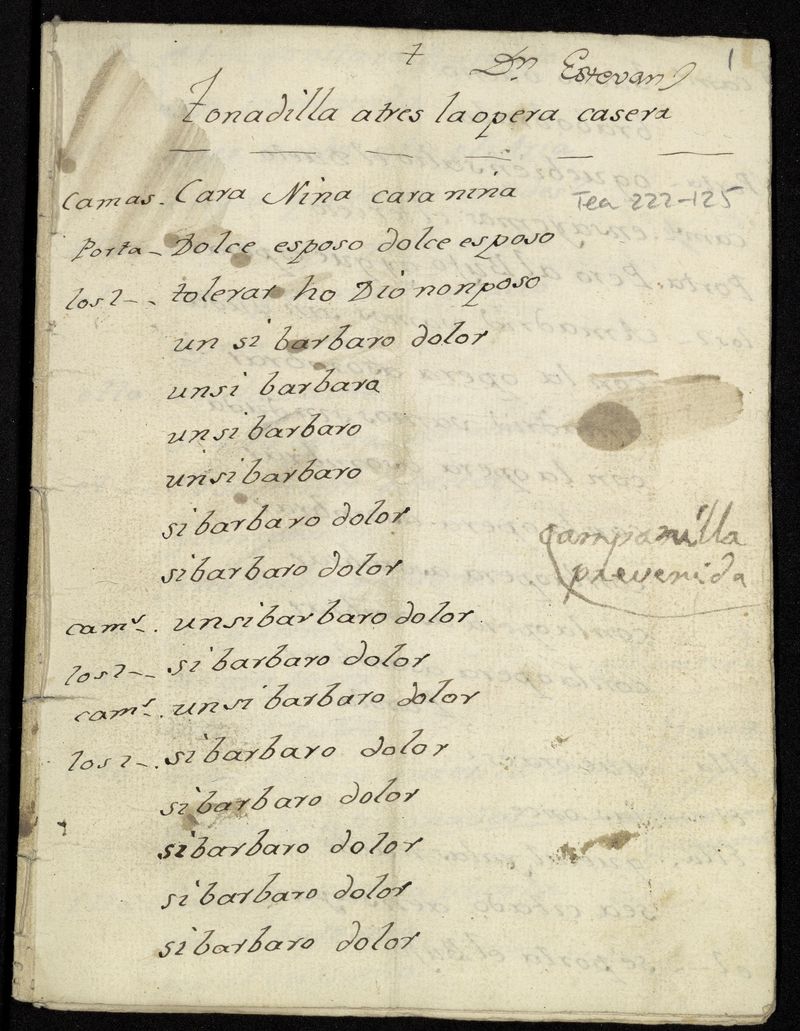 + Dn Estevan 1
Tonadilla atres la opera casera
Camas. Cara Nina cara nina
Tea 222-125
Porta- Dolce esposo dolce esposo
los2-. tolerar ho Dio nonposo
un si barbaro dolor
unsi barbara
unsi barbaro
unsi barbaro
sibarbaro dolor
campanilla
sibarbaro dolor
prevenida
camˢ-. unsibarbaro dolor
los2-- si barbaro dolor
camˢ-. unsi barbaro dolor
los2-. sibarbaro dolor
sibarbaro dolor
sibarbaro dolor
sibarbaro dolor
sibarbaro dolor